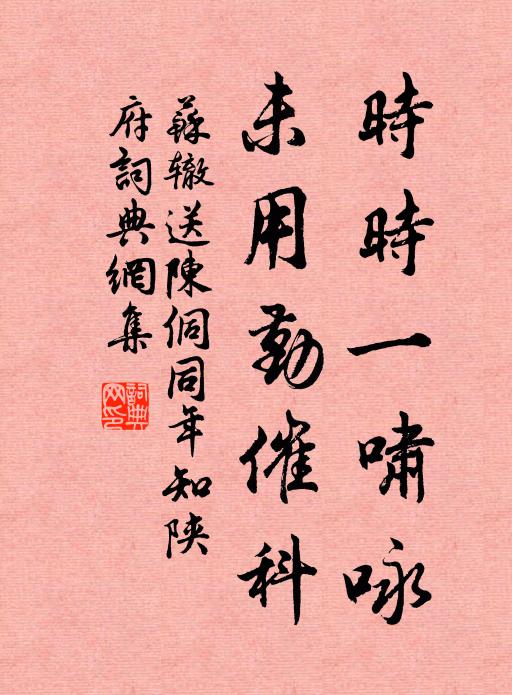 時時一嘯咏
未用勤催科
蘇辙送陳侗同年知陝
府詞典網集
詞典网印